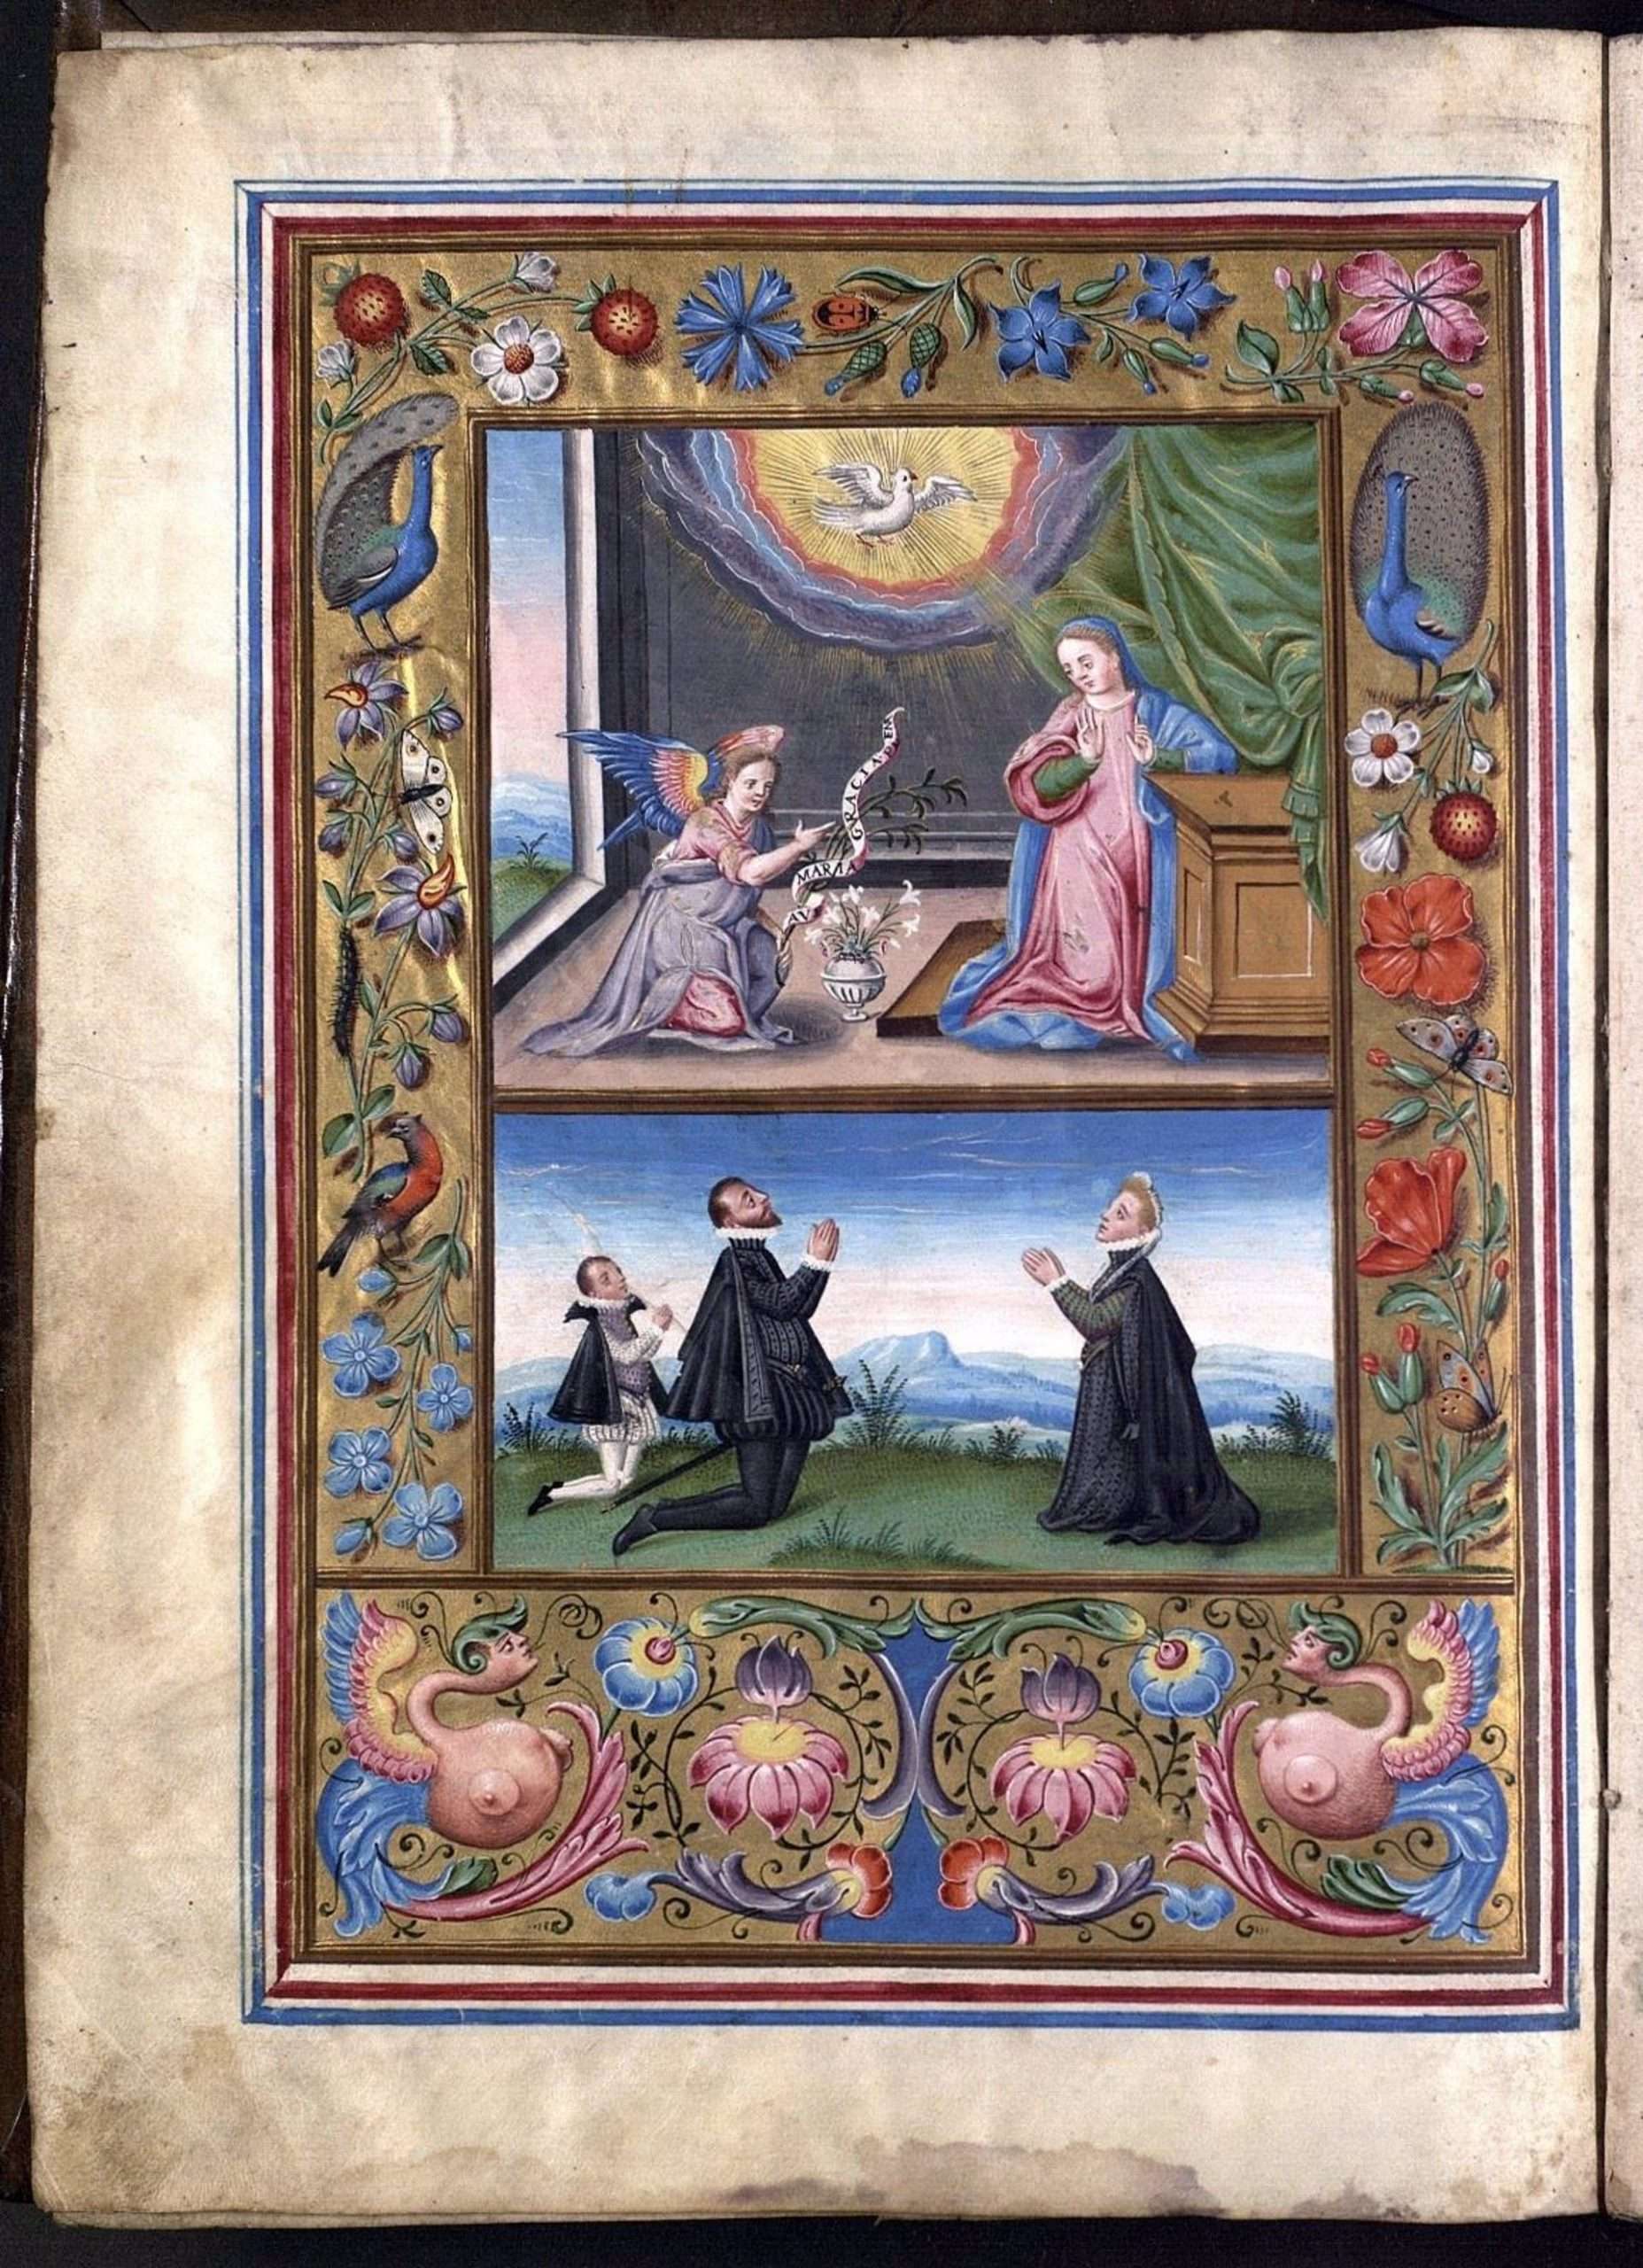 AV MARIA GRACIA PLEN